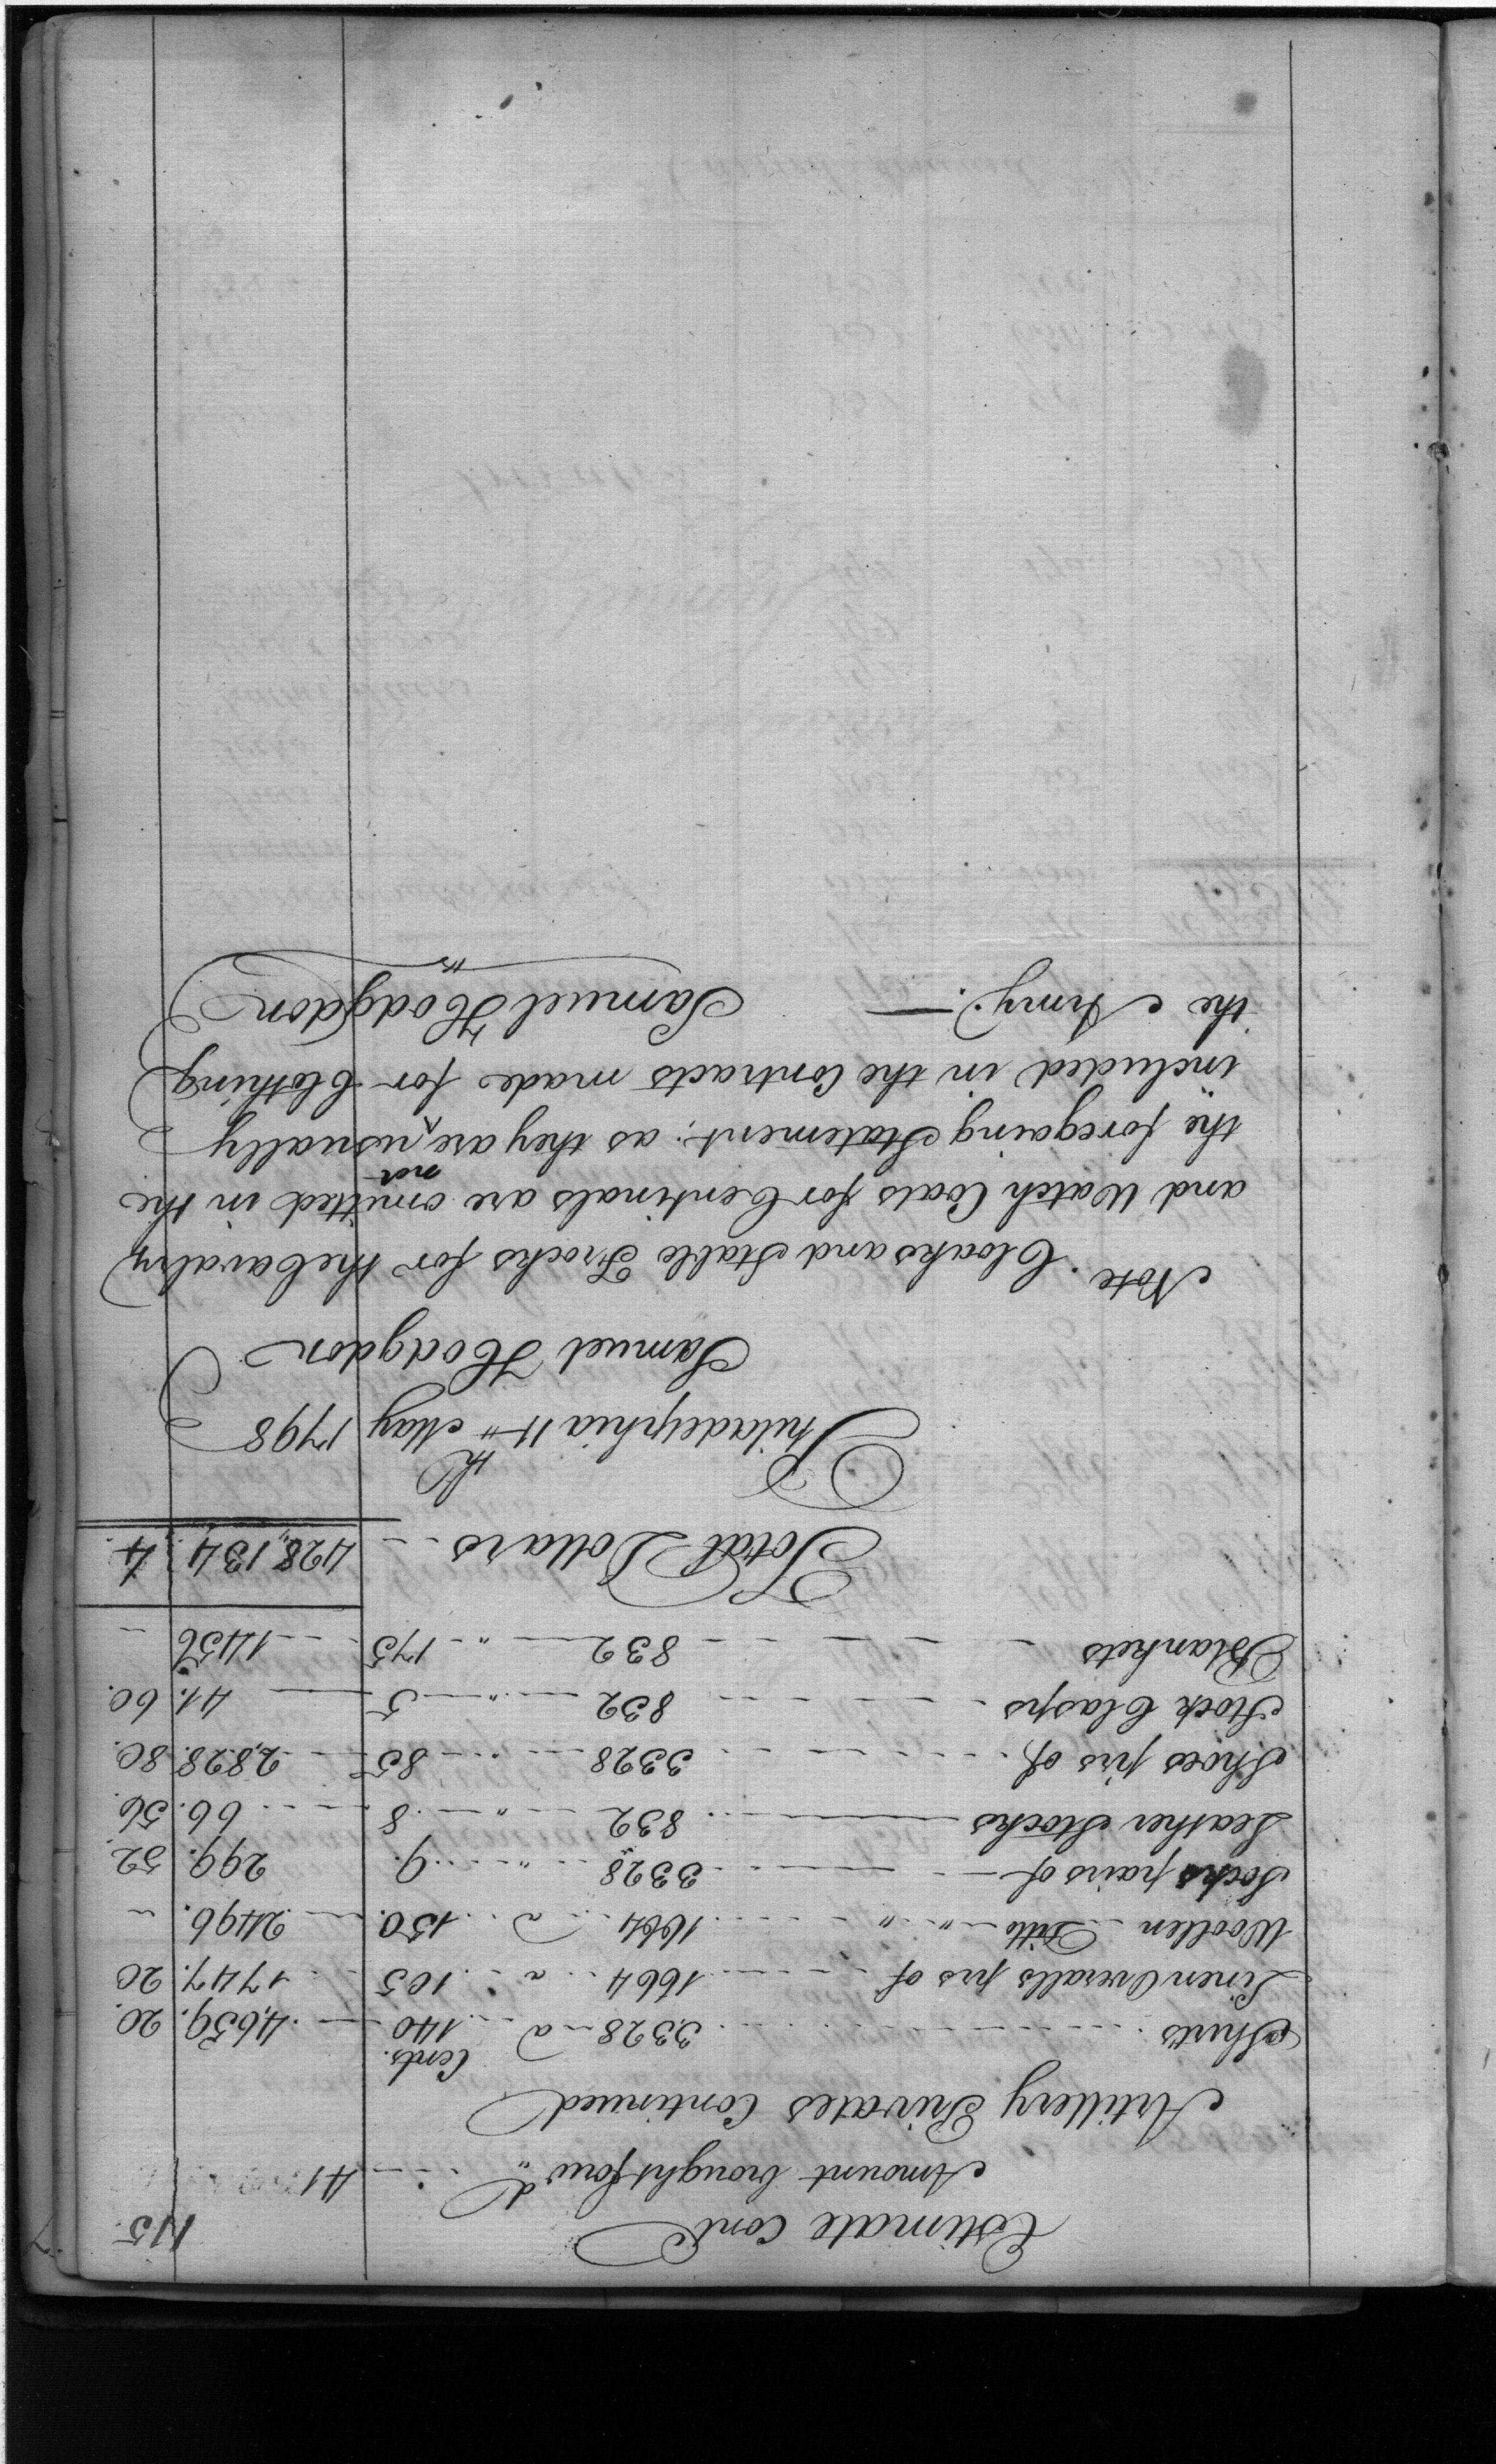 115
Estimate Cont
Amount brought forwd 41
Artillery Privates Continued
Cents.
Shirts 3328 a 140 4,659. 20.
Linen Overalls prs of 1664 a 105 1747. 20
Woollen Ditto 1664 a 150. 2496. "
Socks pairs of 3328 " 9. 299. 52.
Leather Stocks 832 " 8 66. 56.
Shoes prs of 3328 " 85 2,828. 80.
Stock Clasps 832 " 5 41. 60.
Blankets 832 " 175 1456 "
Total Dollars 428,134 4
Philadelphia 11th May 1798
Samuel Hodgdon
Note. Cloaks and Stable Frocks for the Cavalry
and Watch Coats for Centinals are omitted in the
the foregoing Statement; as they are not usually
included in the Contracts made for Clothing
the Army.
Samuel Hodgdon